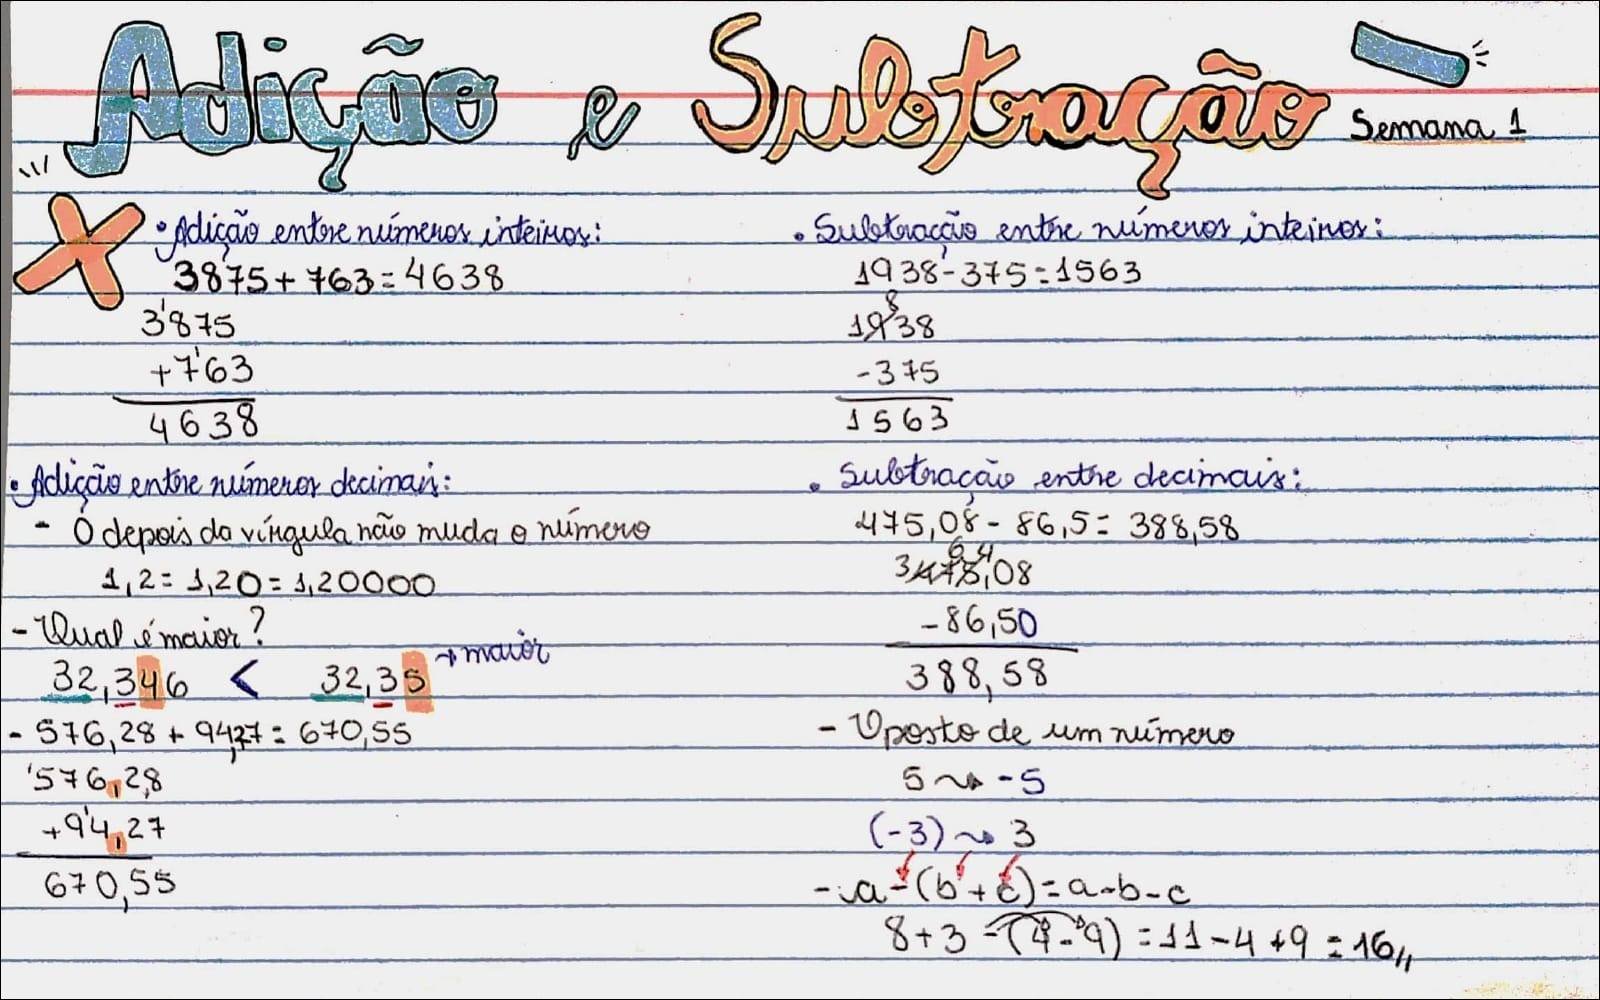 Adição e Subtração Semana 1
• Adição entre números inteiros:
3875 + 763 = 4638
3¹875
+7¹63
4638
• Adição entre números decimais:
- O depois da vírgula não muda o número
1,2 = 1,20 = 1,20000
- Qual é maior?
32,346 < 32,35 → maior
- 576,28 + 94,27 = 670,55
¹576,28
+9¹4,27
670,55
• Subtração entre números inteiros:
1938 - 375 = 1563
8
1938
-375
1563
• Subtração entre decimais:
475,08 - 86,5 = 388,58
6 4
3475,08
-86,50
388,58
- Oposto de um número
5 ⤳ -5
(-3) ⤳ 3
- a - (b + c) = a - b - c
8 + 3 - (4 - 9) = 11 - 4 + 9 = 16,,